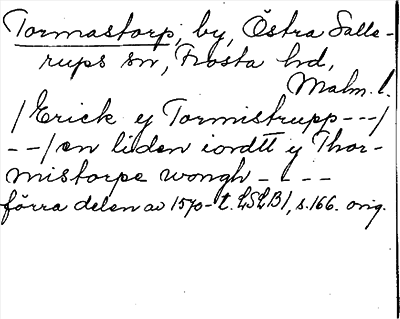 Tormastorp, by, Östra Salle-
rups sn, Frosta hd,
Malm. l.
/Erick y Tormistrupp - - -/
- - / en liden iordtt y Thor-
mistorpe wongh - - - -
förra delen av 1570-t. LSLB1, s. 166. orig.